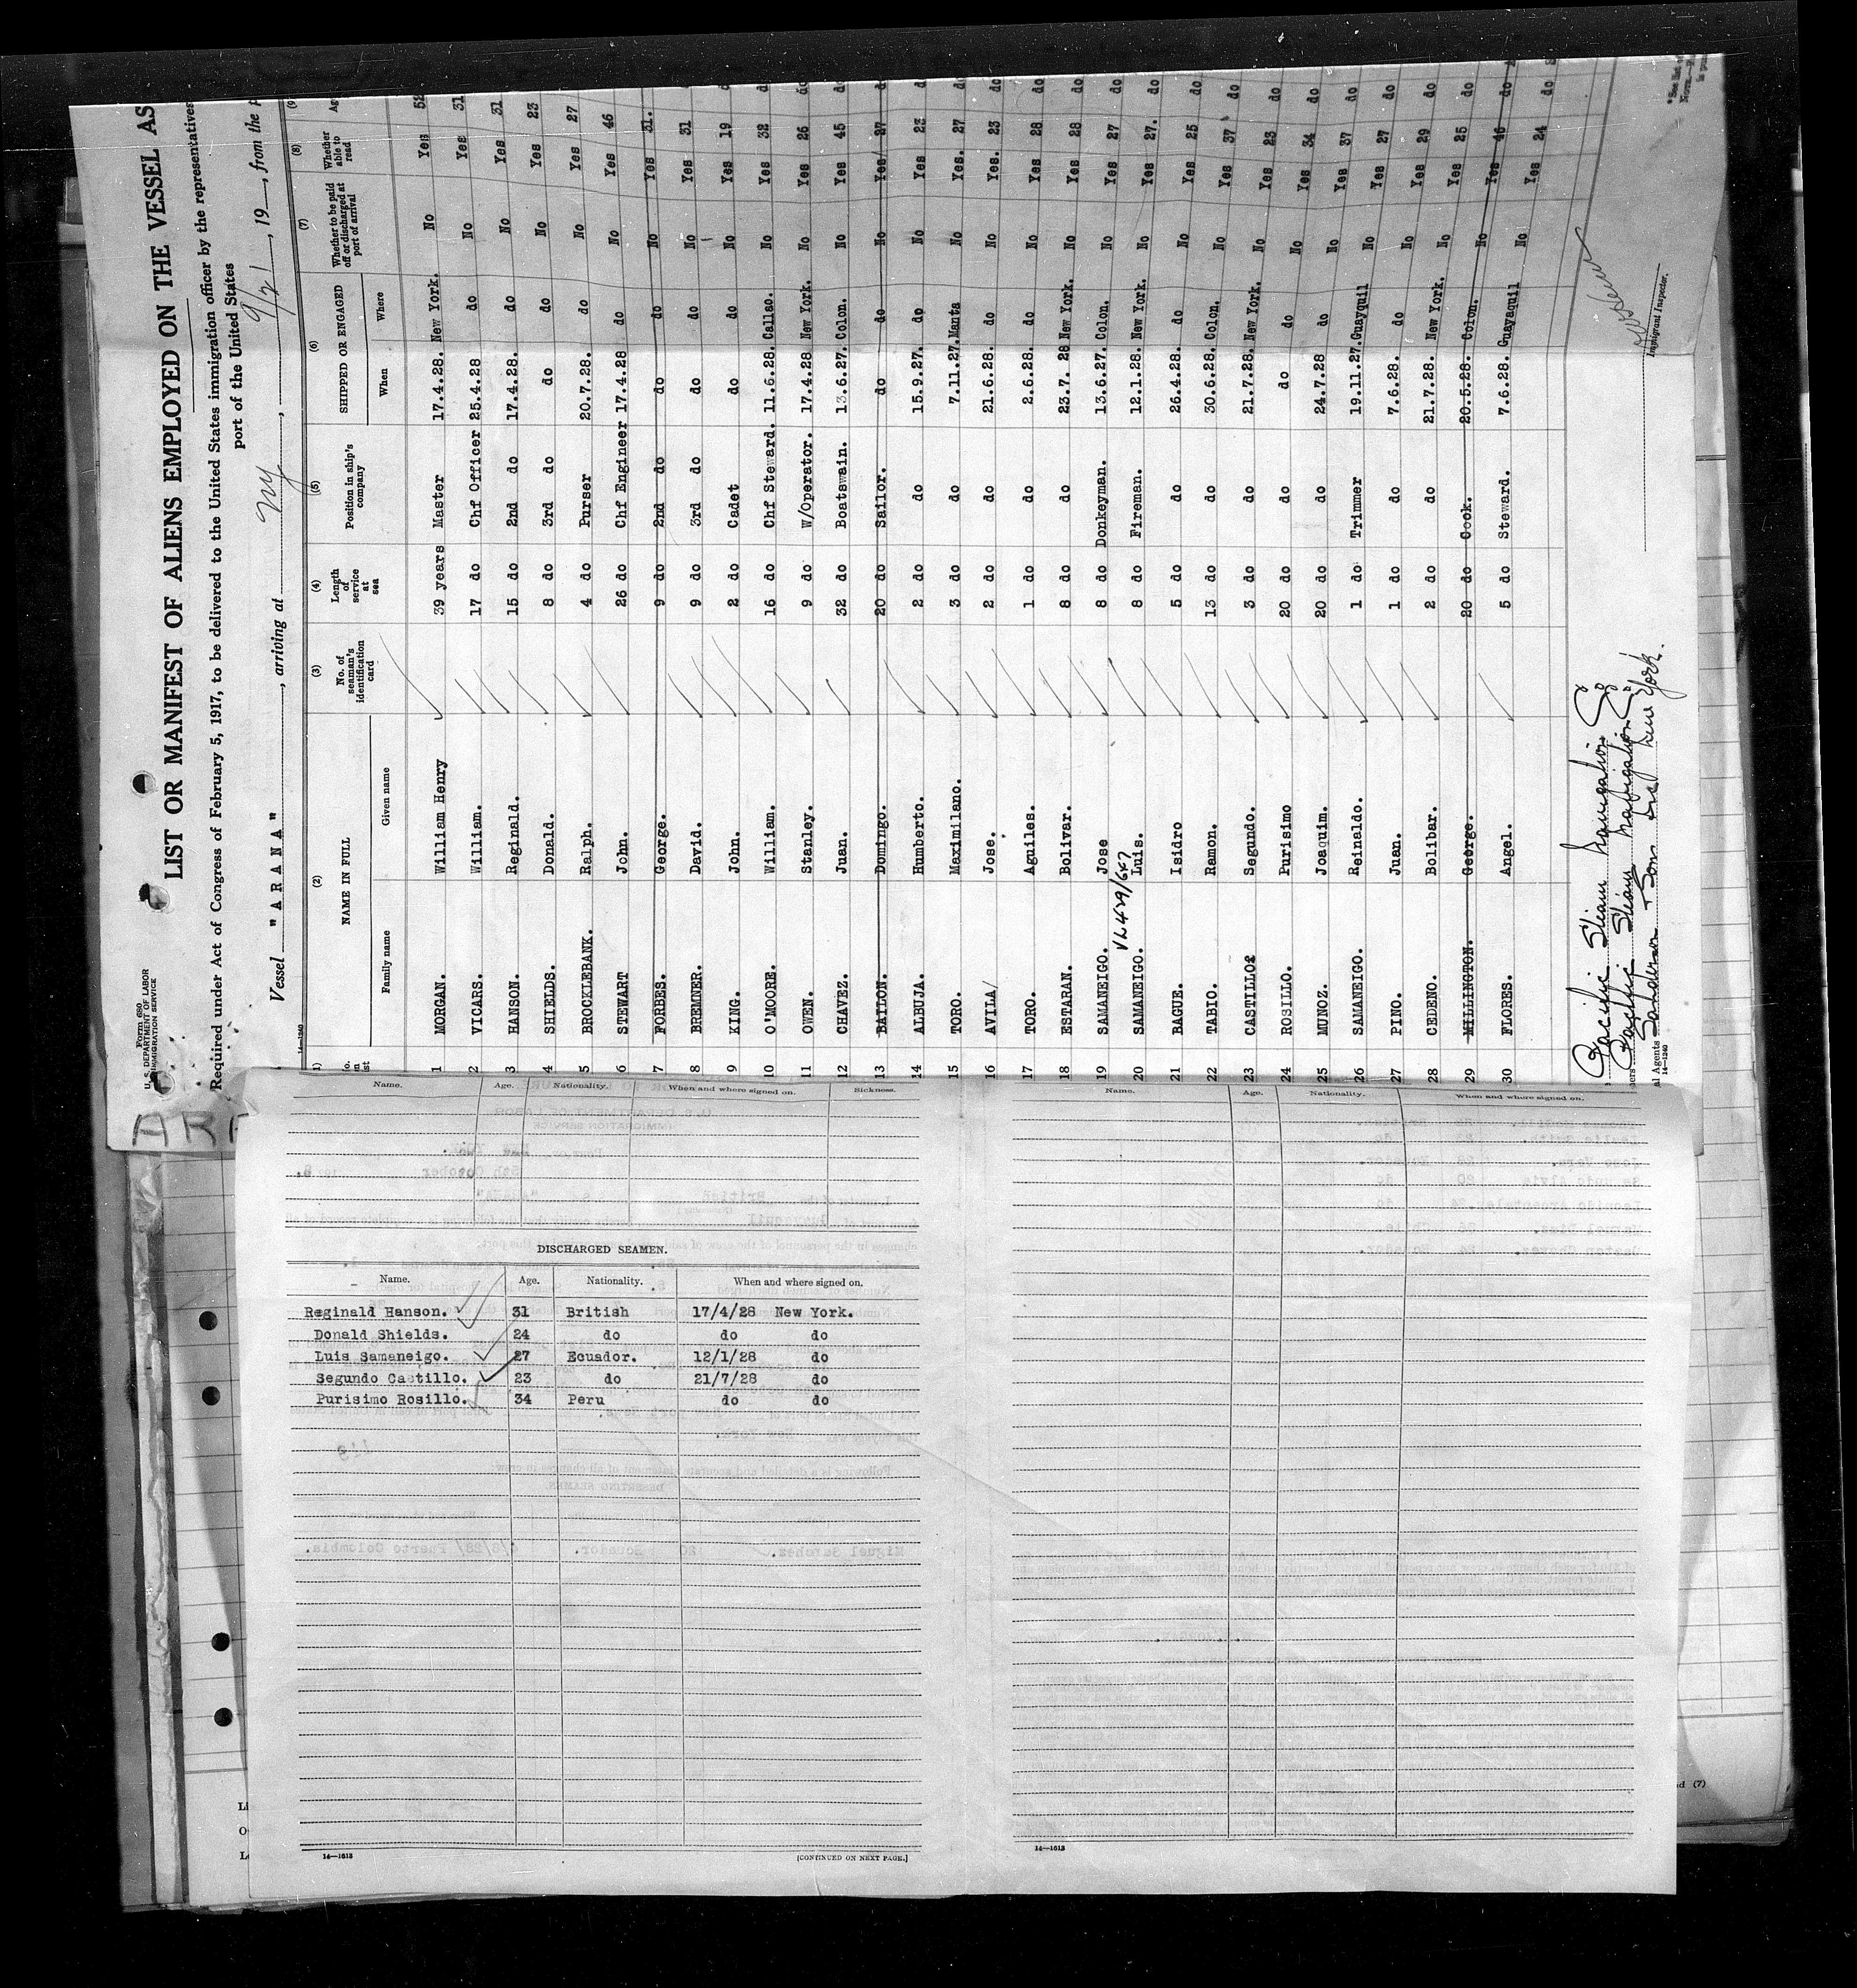 Form 680
U. S. DEPARTMENT OF LABOR
IMMIGRATION SERVICE
LIST OR MANIFEST OF ALIENS EMPLOYED ON THE VESSEL AS
Required under Act of Congress of February 5, 1917, to be delivered to the United States immigration officer by the representatives
port of the United States
Vessel "ARANA", arriving at NY, 9/21, 19, from the
14-1240
(2) (3) (4) (5) (6) (7) (8)
NAME IN FULL No. of seaman's identification card Length of service at sea Position in ship's company SHIPPED OR ENGAGED Whether to be paid off or discharged at port of arrival Whether able to read
Family name Given name When Where
1 MORGAN. William Henry 39 years Master 17.4.28. New York. No Yes 52
2 VICARS. William. 17 do Chf Officer 25.4.28 do No Yes 31
3 HANSON. Reginald. 15 do 2nd do 17.4.28. do No Yes 31
4 SHIELDS. Donald. 8 do 3rd do do do No Yes 23
5 BROCKLEBANK. Ralph. 4 do Purser 20.7.28. do No Yes 27
6 STEWART John. 26 do Chf Engineer 17.4.28 do No Yes 46
7 FORBES. George. 9 do 2nd do do do No Yes 31.
8 BREMNER. David. 9 do 3rd do do do No Yes 31
9 KING. John. 2 do Cadet do do No Yes 19
10 O'MOORE. William. 16 do Chf Steward. 11.6.28. Callao. No Yes 32
11 OWEN. Stanley. 9 do W/Operator. 17.4.28 New York. No Yes 26
12 CHAVEZ. Juan. 32 do Boatswain. 13.6.27. Colon. No Yes 45
13 BAILON. Domingo. 20 do Sailor. do do No Yes 27
14 ALBUJA. Humberto. 2 do do 15.9.27. do No Yes 23
15 TORO. Maximilano. 3 do do 7.11.27. Manta No Yes. 27
16 AVILA/ Jose. 2 do do 21.6.28. do No Yes. 23
17 TORO. Aguiles. 1 do do 2.6.28. do No Yes 28
18 ESTARAN. Bolivar. 8 do do 23.7. 28 New York. No Yes 28
19 SAMANEIGO. Jose 8 do Donkeyman. 13.6.27. Colon. No Yes 27
20 SAMANEIGO. Luis. 8 do Fireman. 12.1.28. New York. No Yes 27.
21 BAGUE. Isidro 5 do do 26.4.28. do No Yes 25
22 TABIO. Ramon. 13 do do 30.6.28. Colon. No Yes 37
23 CASTILLO. Segundo. 3 do do 21.7.28. New York. No Yes 23
24 ROSILLO. Purisimo 20 do do do do No Yes 34
25 MUNOZ. Joaquim. 20 do do 24.7.28 do No Yes 37
26 SAMANEIGO. Reinaldo. 1 do Trimmer 19.11.27. Guayquil No Yes 27
27 PINO. Juan. 1 do do 7.6.28. do No Yes 29
28 CEDENO. Bolibar. 2 do do 21.7.28. New York. No Yes 25
29 MILLINGTON. George. 20 do Cook. 20.5.28. Colon. No Yes 46
30 FLORES. Angel. 5 do Steward. 7.6.28. Guayaquil No Yes 24
Pacific Steam Navigation Co
Pacific Steam Navigation Co
al Agents Sanderson & Son New York.
14-1240
Immigrant Inspector.
Name. Age. Nationality. When and where signed on. Sickness.
DISCHARGED SEAMEN.
Name. Age. Nationality. When and where signed on.
Reginald Hanson. 31 British 17/4/28 New York.
Donald Shields. 24 do do do
Luis Samaneigo. 27 Ecuador. 12/1/28 do
Segundo Castillo. 23 do 21/7/28 do
Purisimo Rosillo. 34 Peru do do
14-1613
[CONTINUED ON NEXT PAGE.]
Name. Age. Nationality. When and where signed on.
14-1613